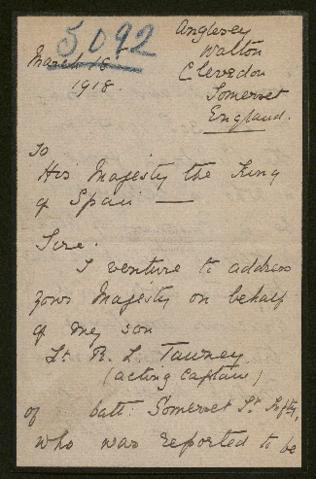 5092
Anglesey
Walton
March 18
Clevedon
1918.
Somerset
England.
To
His Majesty the King
of Spain —
Sire.
I venture to address
your Majesty on behalf
of my son
Lt R. L. Tawney
(acting Captain)
of batt: Somerset Lt Infty,
who was reported to be